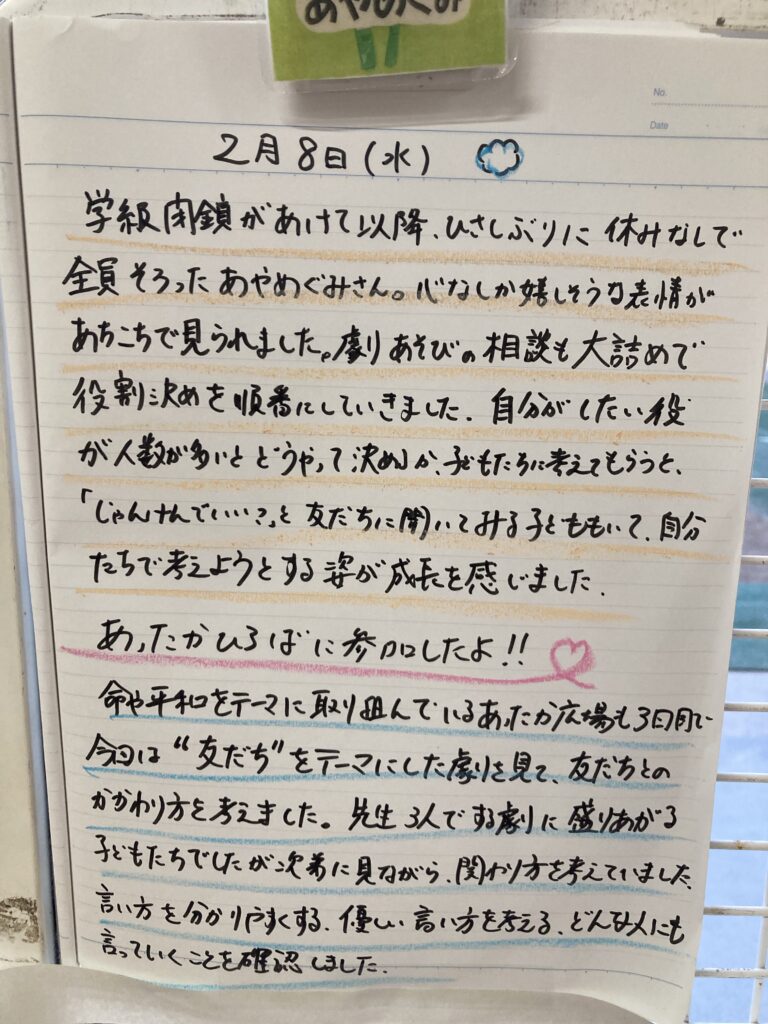 あやめぐみ
No.
Date
2月8日(水)
学級閉鎖があけて以降、ひさしぶりに休みなしで
全員そろったあやめぐみさん。心なしか嬉しそうな表情が
あちこちで見られました。劇りあそびの相談も大詰めで
役割決めを順番にしていきました。自分がしたい役
が人数が多いとどうやって決めるか、子どもたちに考えてもらうと、
「じゃんけんでいい?」と友だちに聞いてみる子どももいて、自分
たちで考えようとする姿が成長を感じました。
あったかひろばに参加したよ!!
命や平和をテーマに取り組んでいるあったか広場も3日目で
今回は“友だち”をテーマにした劇りを見て、友だちとの
かかわり方を考えました。先生3人でする劇に盛りあがる
子どもたちでしたが次第に見ながら、関わり方を考えていました。
言い方を分かりやすくする、優しい言い方を考える、どんな人にも
言っていくことを確認しました。